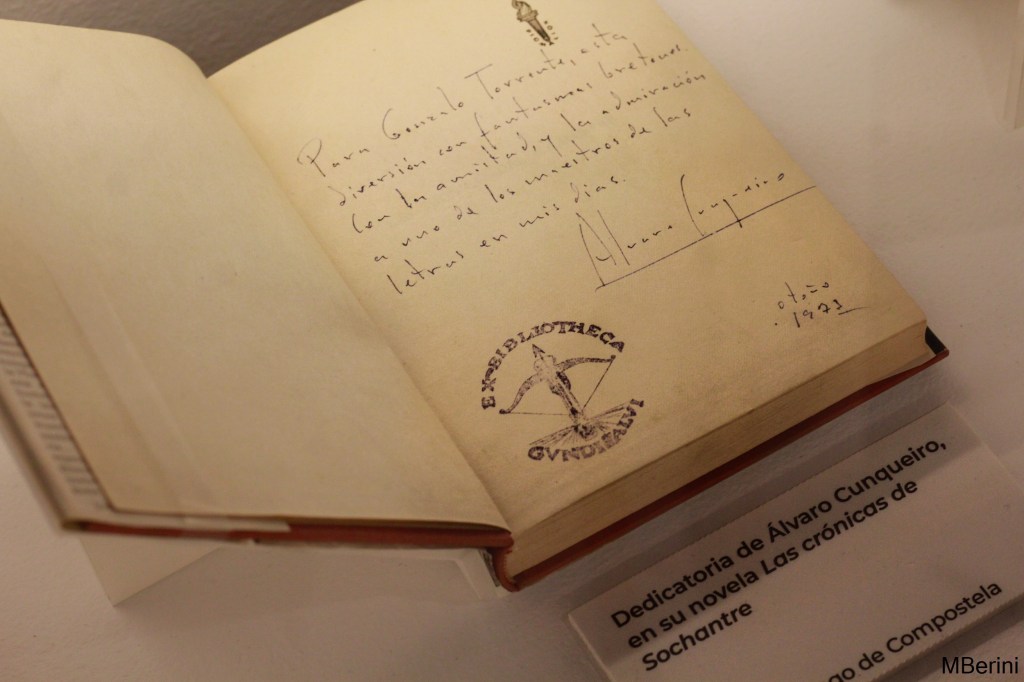 Para Gonzalo Torrente, esta
diversión con fantasmas bretones
con la amistad, y la admiración
a uno de los maestros de las
letras en mis días.
Álvaro Cunqueiro
otoño
1973
EX-BIBLIOTHECA
GVNDISALVI
Dedicatoria de Álvaro Cunqueiro,
en su novela Las crónicas de
Sochantre
go de Compostela
MBerini